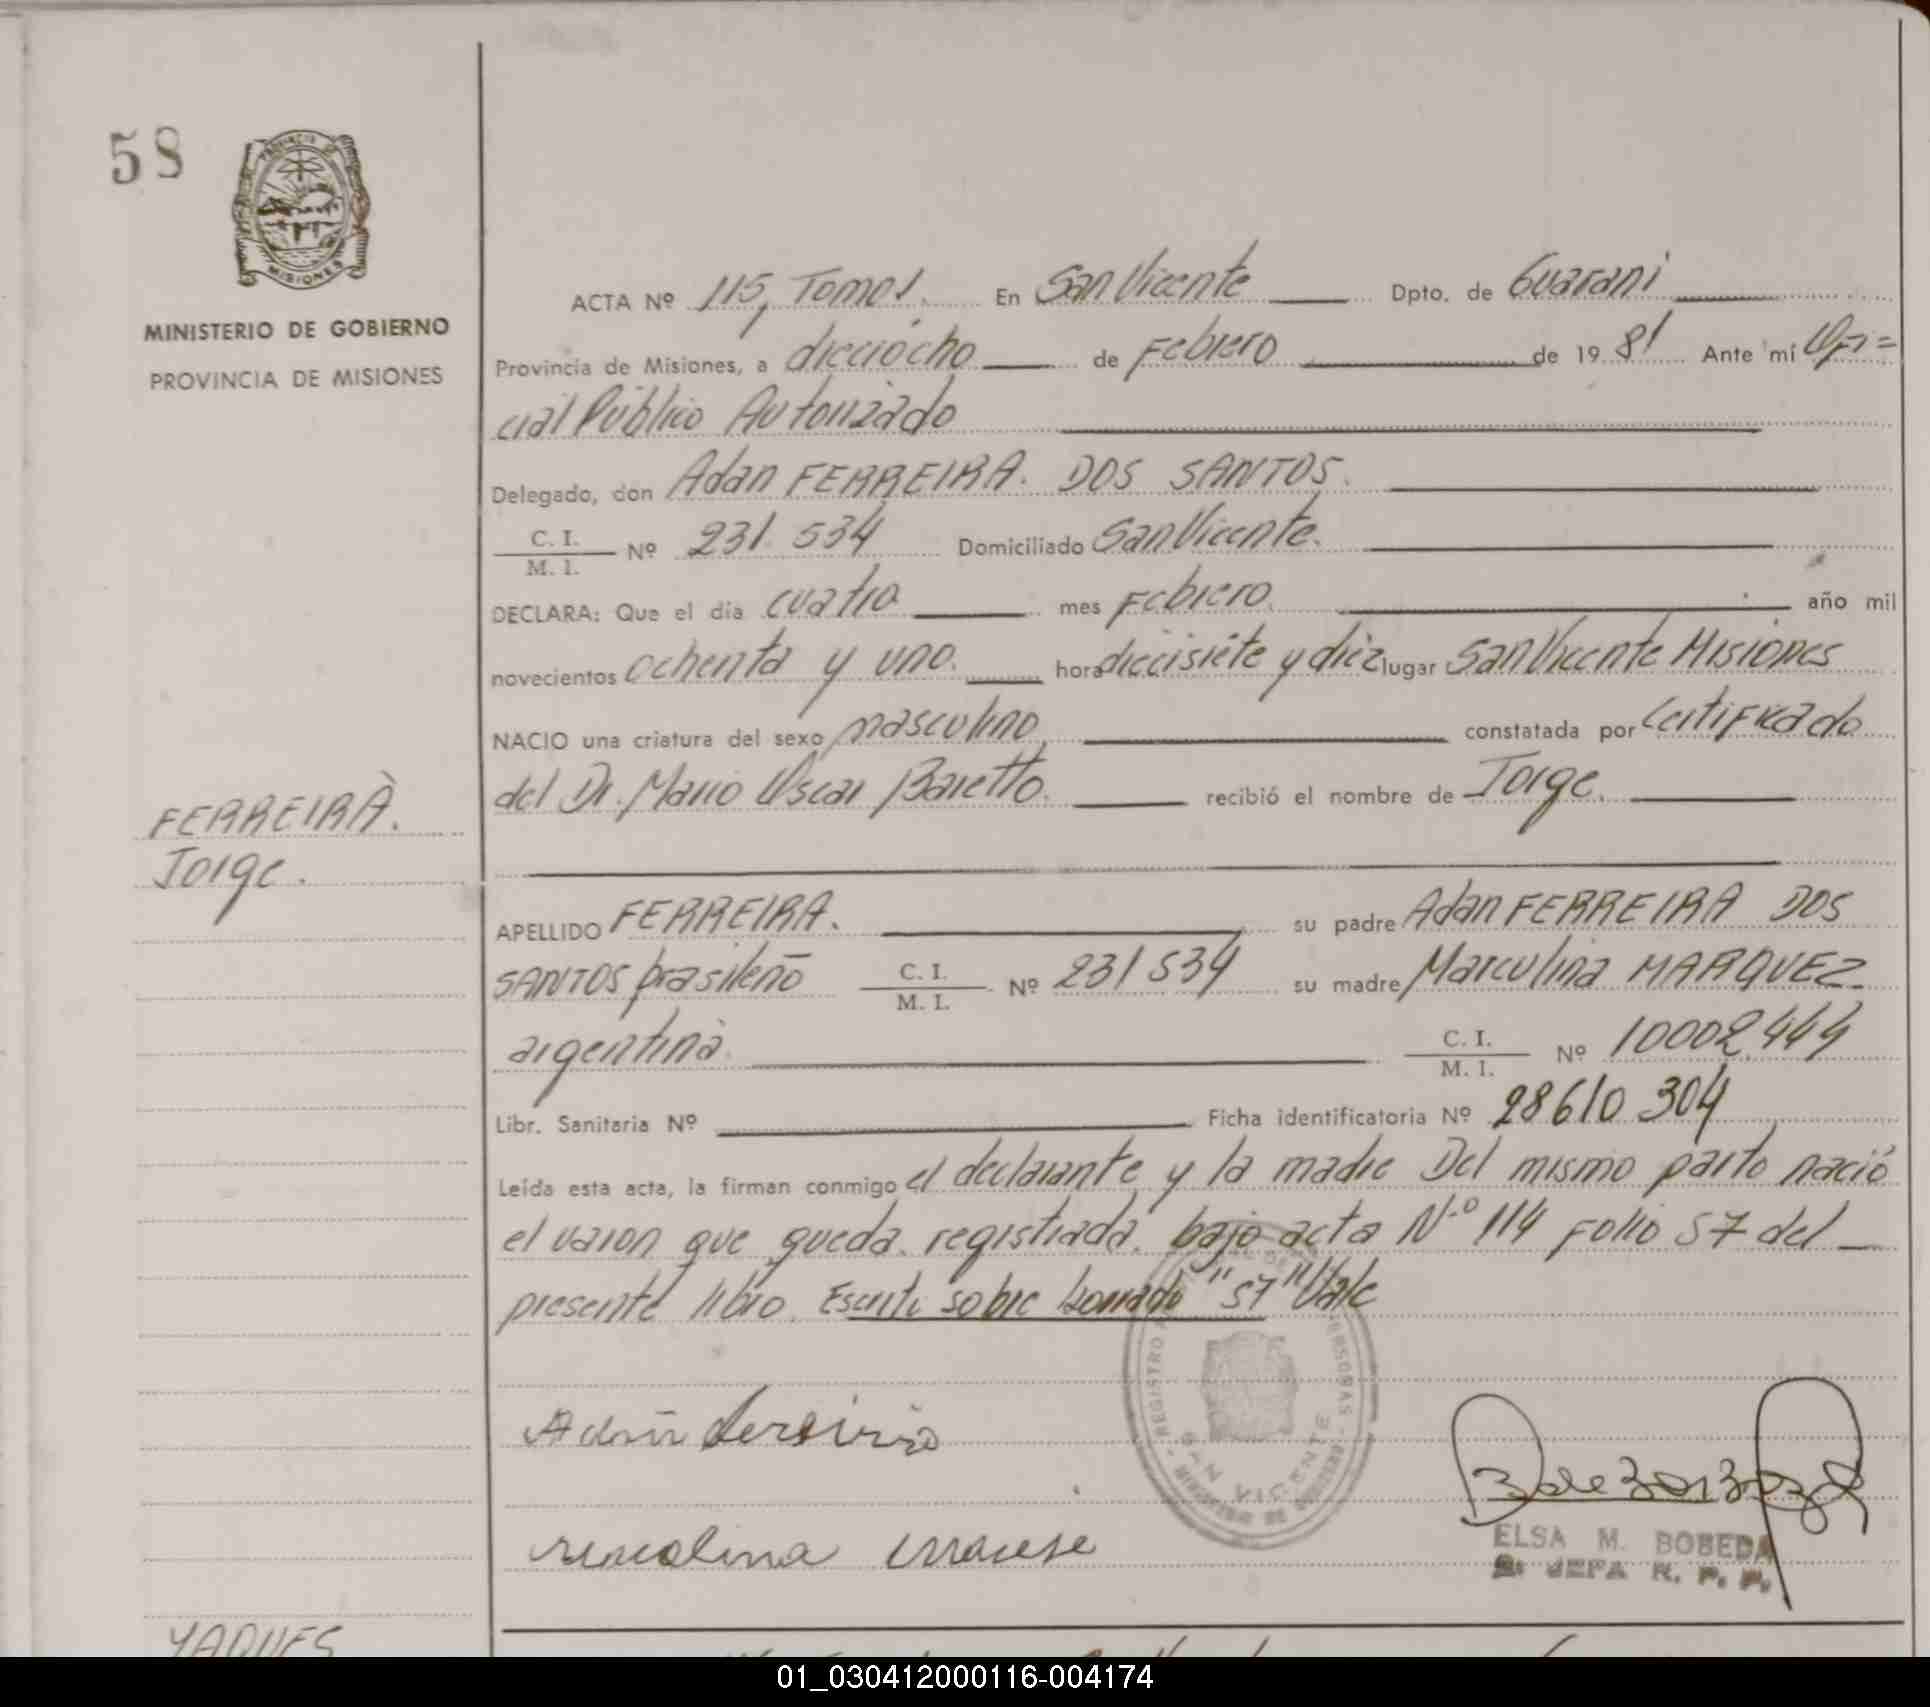 58
PROVINCIA DE
MISIONES
MINISTERIO DE GOBIERNO
PROVINCIA DE MISIONES
ACTA Nº 115, Tomo I. En San Vicente Dpto. de Guarani
Provincia de Misiones, a dieciocho de Febrero de 19 81 Ante mí Ofi=
cial Público Autorizado
Delegado, don Adan FERREIRA. DOS SANTOS.
C. I.
M. I. Nº 231.534 Domiciliado San Vicente.
DECLARA: Que el día cuatro mes Febrero año mil
novecientos ochenta y uno. hora diecisiete y diez lugar San Vicente Misiones
NACIO una criatura del sexo masculino constatada por Certificado
del Dr. Mario Oscar Baretto. recibió el nombre de Jorge.
FERREIRA.
Jorge.
APELLIDO FERREIRA. su padre Adan FERREIRA DOS
SANTOS brasileño C. I.
M. I. Nº 231534 su madre Marculina MARQUEZ
argentina. C. I.
M. I. Nº 10002.444
Libr. Sanitaria Nº Ficha identificatoria Nº 28610.304
Leída esta acta, la firman conmigo el declarante y la madre Del mismo parto nació
el varon que queda registrada bajo acta Nº 114 Folio 57 del
presente libro. Escrito sobre borrado "57" Vale
REGISTRO PERSONAS
SAN VICENTE
MINISTERIO DE GOBIERNO
Adan
ELSA M. BOBEDA
JEFA R. P. P.
YAQUES
01_030412000116-004174